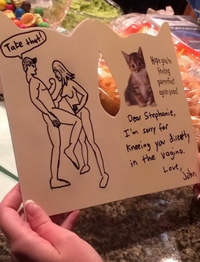 Take that!
Hope you're
feeling
purrrfect
again soon!
Dear Stephanie,
I'm sorry for
kneeing you directly
in the vagina.
Love,
John